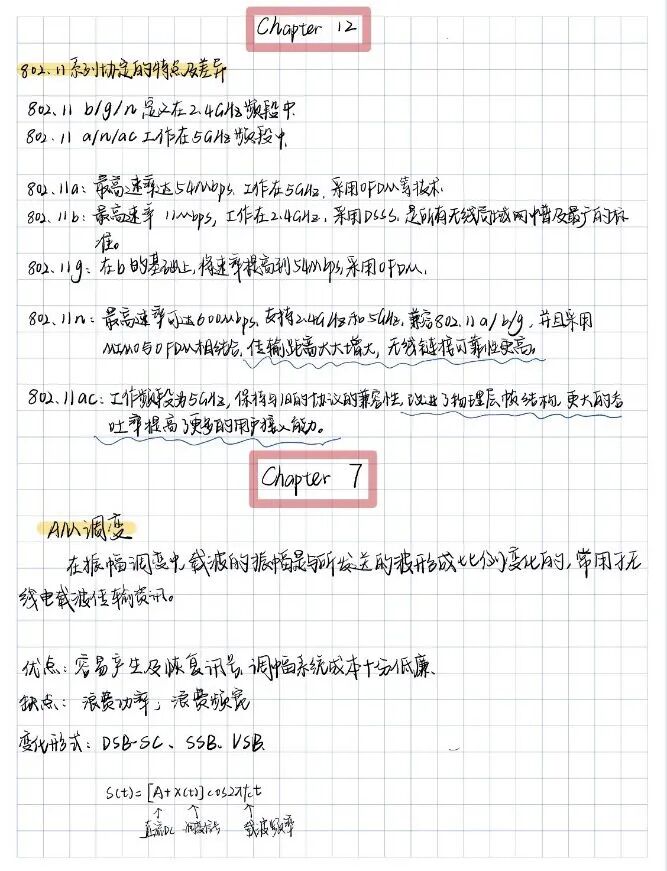 Chapter 12
802.11系列协定的特点及差异
802.11 b/g/n 定义在2.4GHz频段中.
802.11 a/n/ac 工作在5GHz频段中.
802.11a: 最高速率达54Mbps. 工作在5GHz. 采用OFDM等技术.
802.11b: 最高速率 11Mbps, 工作在2.4GHz. 采用DSSS. 是所有无线局域网中普及最广的标
准。
802.11g: 在b的基础上, 将速率提高到54Mbps, 采用OFDM.
802.11n: 最高速率可达600Mbps. 支持2.4GHz和5GHz, 兼容802.11a/b/g, 并且采用
MIMO与OFDM相结合. 传输距离大大增大, 无线链接可靠性更高。
802.11ac: 工作频段为5GHz, 保持与旧的协议的兼容性. 改进了物理层帧结构. 更大的吞
吐率提高了更多的用户接入能力。
Chapter 7
AM调变
在振幅调变中, 载波的振幅是与所发送的波形成比例变化的, 常用于无
线电载波传输资讯。
优点: 容易产生及恢复讯号, 调幅系统成本十分低廉.
缺点: 浪费功率, 浪费频宽
变化形式: DSB-SC、SSB、VSB.
S(t)=[A+x(t)]cos2πfct
直流DC 调变信号 载波频率